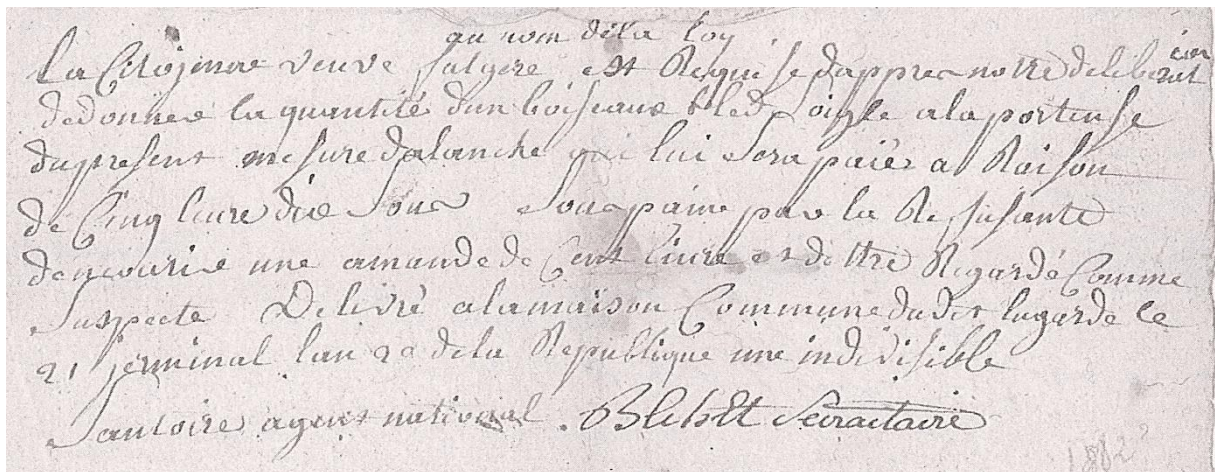 au nom dela loy
la Citojenne veuve salgere est Requise dapprer notre deliberation
dedonner la quantité dun boisseaux bled soigle ala porteuse
dupresent mesure dalanche qui lui sera paiée a Raison
de Cinq livre dix sous sous paine par la Refusante
dencourir une amande de Cent livre et dettre Regardé Comme
suspecte Delivré alamaison Commune dudit lagarde le
21 jerminal lan 2e dela Republique une indivisible
agent national . Secraitaire